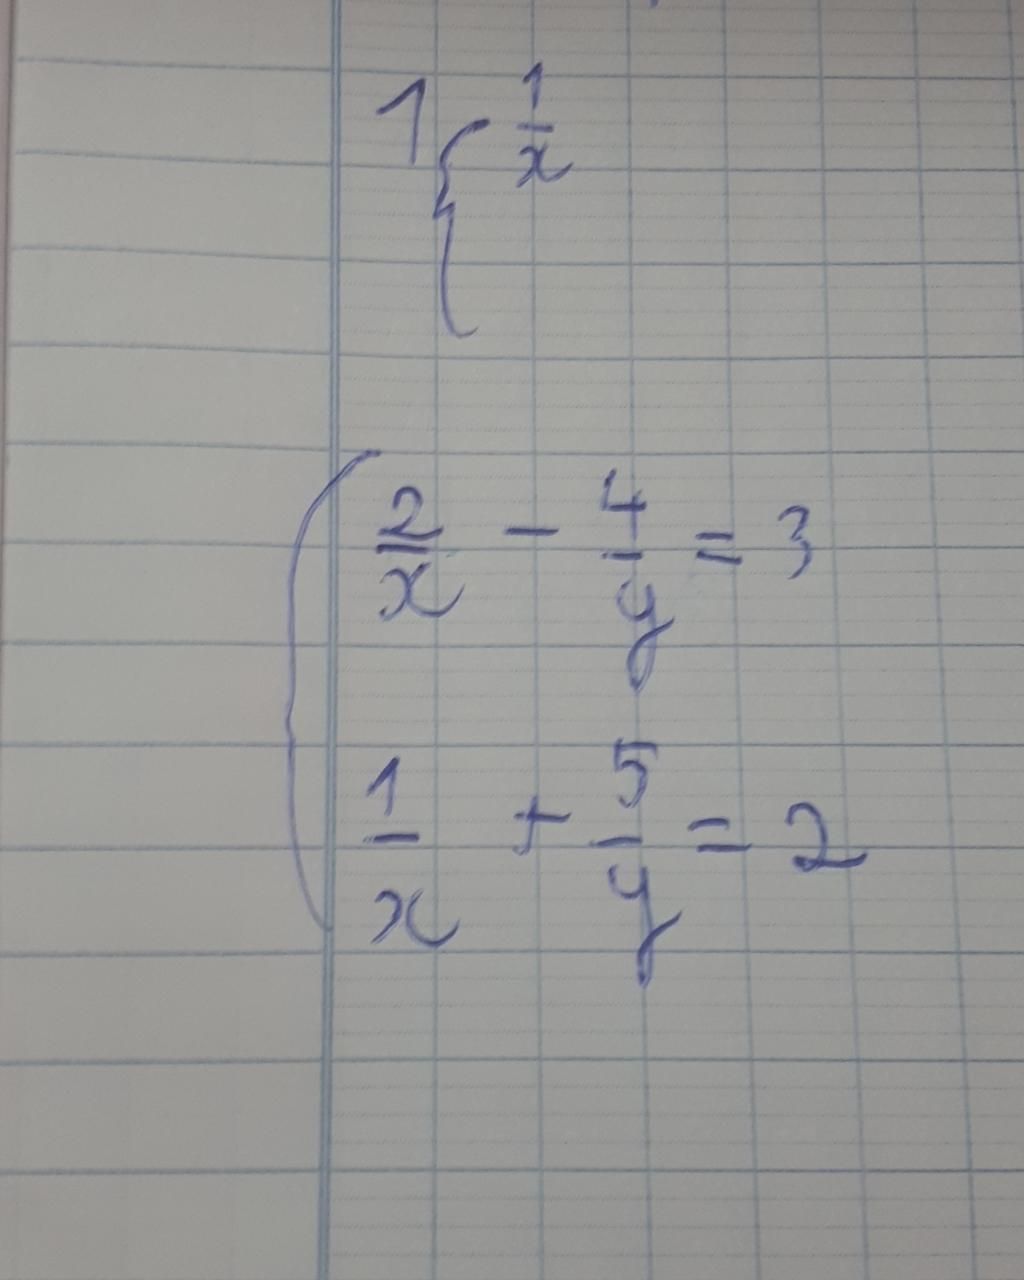 1 { 1/x
2/x - 4/y = 3
1/x + 5/y = 2